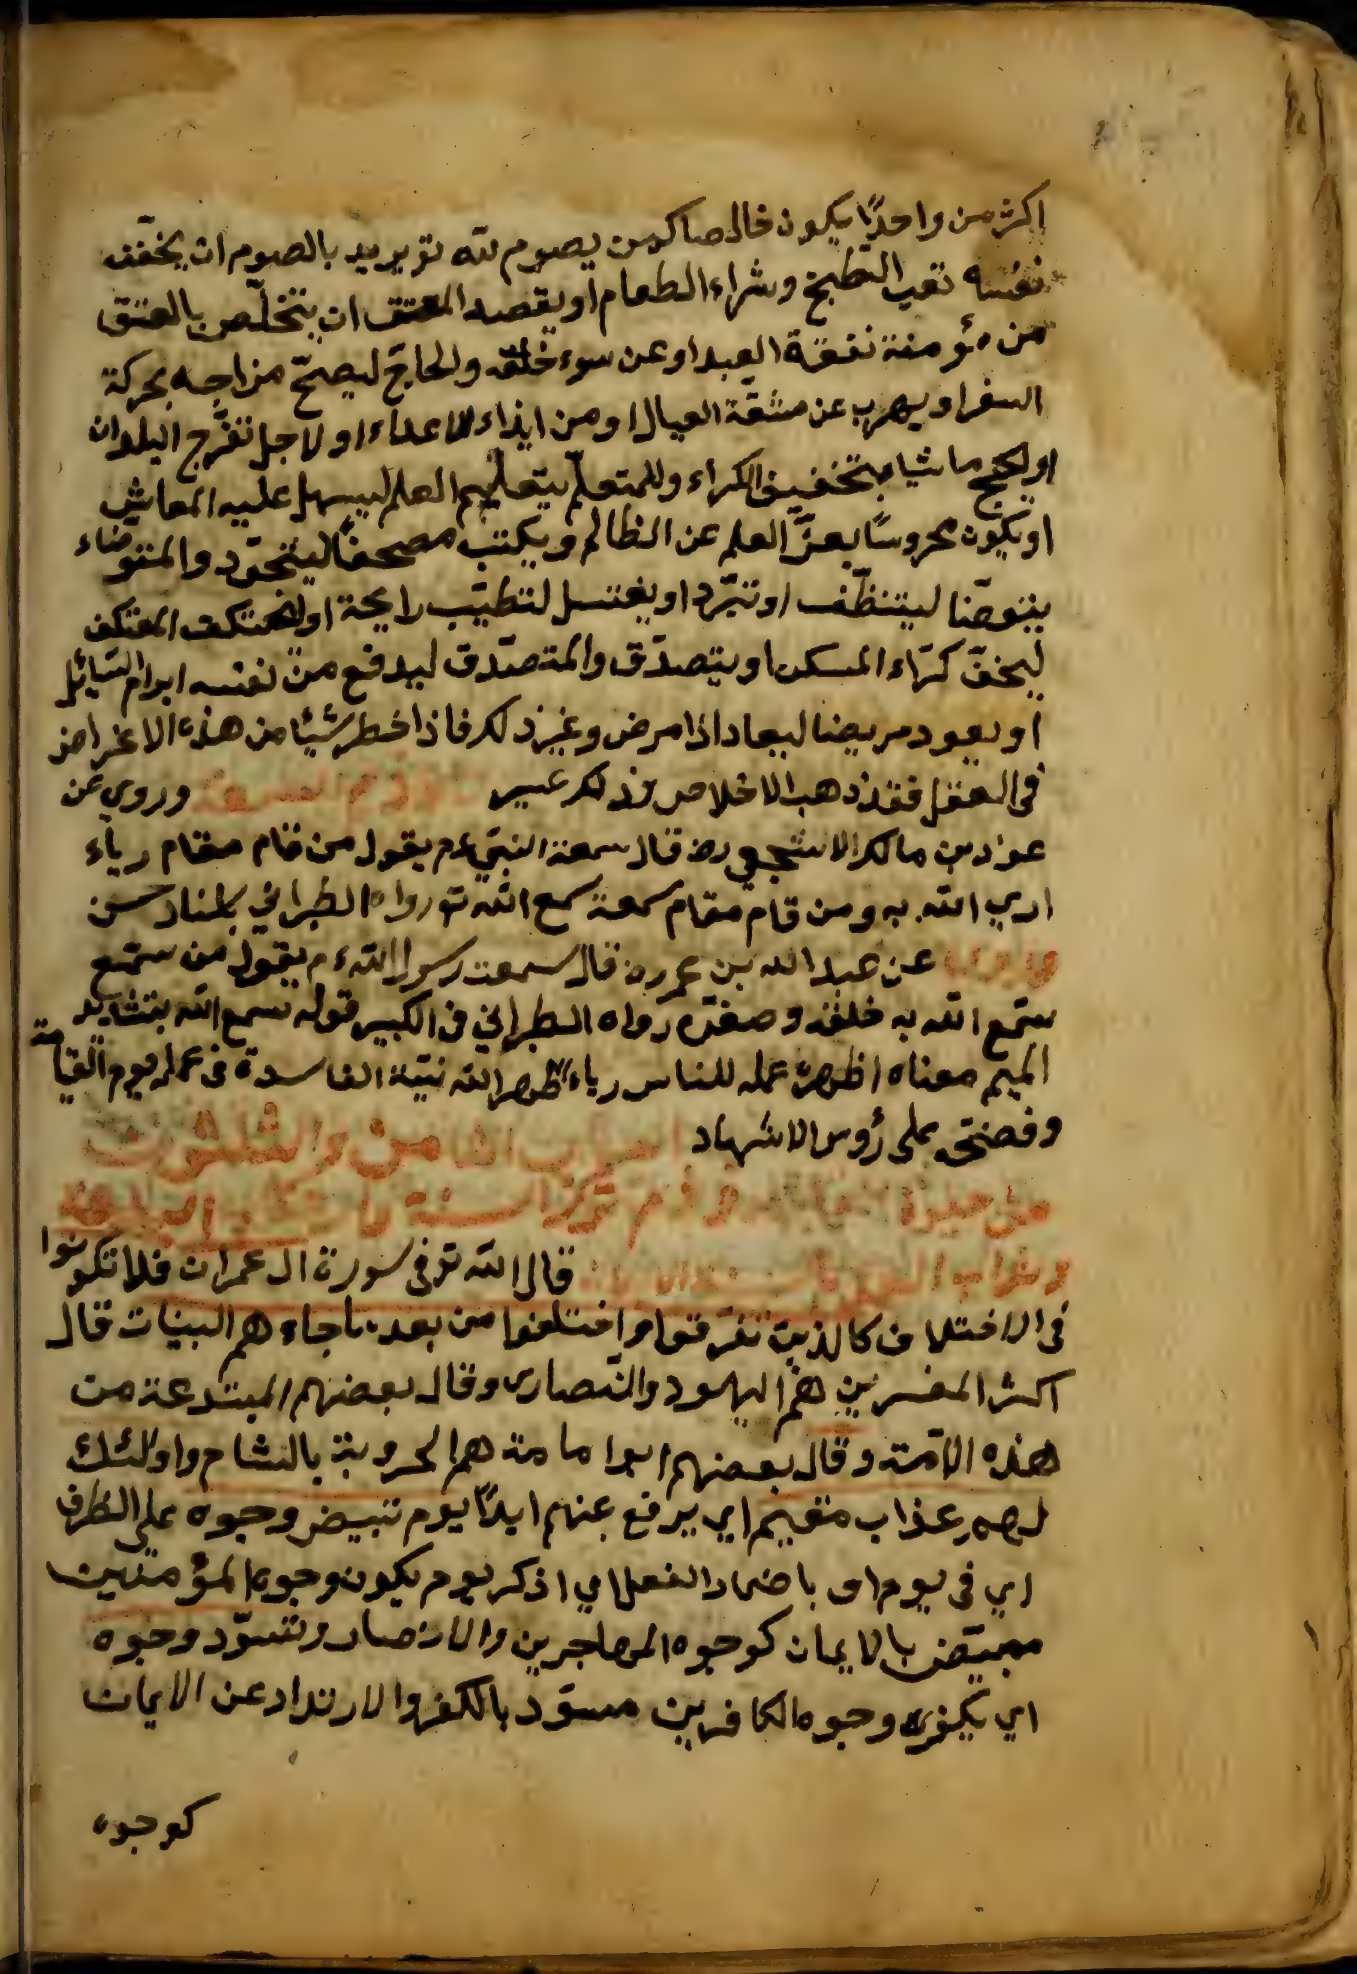 اكثر من واحدًا يكون خالصا كمن يصوم لله تع يريد بالصوم ان يخفّف
نفسه تعب الطبخ وشراء الطعام او يقصد المعتق ان يتخلّص بالعتق
من مؤمنة نفقة العبد او عن سوء خلقه والحاجّ ليصحّ مزاجه بحركة
السفر او يهرب عن مشقّة العيال او من ايذاء الاعداء او لاجل تفرّج البلدان
او ليحج ماشيا بتخفيف الكراء وللمتعلّم يتعلّم العلم ليسهل عليه المعاش
او يكون محروسًا بعزّ العلم عن الظالم ويكتب مصحفًا ليتجوّد والمتوضاء
يتوضّا ليتنظّف او تبرّد او يغتسل لتطيّب رايحة او المعتكف
ليخفّ كراء المسكن او يتصدّق والمتصدّق ليدفع من نفسه ابرام السّايل
او يعود مريضا ليعاد اذا مرض وغير ذلك فاذا خطر شيئا من هذه الاغراض
فى العقل فقد ذهب الاخلاص ذم السمعة وروي عن
عواد بن مالك الاشجعي رض قال سمعت النبي عم يقول من قام مقام رياء
اري الله به ومن قام مقام سمعة سمع الله تع رواه الطبراني باسناد حسن
وروي عن عبد الله بن عمر رض قال سمعت رسول الله عم يقول من سمّع
سمّع الله به خلقه وصغّره رواه الطبراني فى الكبير قوله سمع الله بتشديد
الميم معناه اظهر عمله للناس رياء اظهر الله نيّته الفاسدة فى عمله يوم القيامة
وفضحه على رؤس الاشهاد الباب الثامن والثلثون
من فى ذم ترك السنة البدعة
قال الله تع فى سورة ال عمران فلا تكونوا
فى الاختلاف كالذين تفرقوا واختلفوا من بعد ما جاء هم البينات قال
اكثر المفسرين هم اليهود والنّصارى وقال بعضهم المبتدعة من
هذه الامّة وقال بعضهم ابوا مامة هم الحرورية بالشام واولئك
لهم عذاب مقيم اي يرفع عنهم ابدًا يوم تبيض وجوه على الظرف
اي فى يوم او باضمار الفعل اي اذكر يوم يكون وجوه المؤمنين
مبيّض بالايمان كوجوه المهاجرين والانصار وتسوّد وجوه
اي يكون وجوه الكافرين مسوّد بالكفر والارتداد عن الايمان
كوجوه